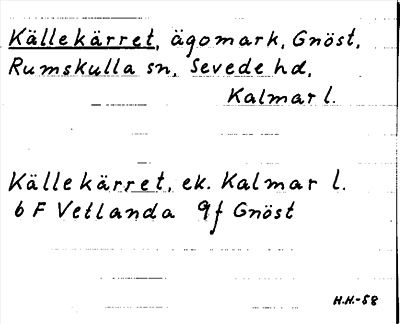 Källekärret, ägomark, Gnöst,
Rumskulla sn, Sevede hd,
Kalmar l.
Källekärret, ek. Kalmar l.
6 F Vetlanda 9f Gnöst
H.H.-58